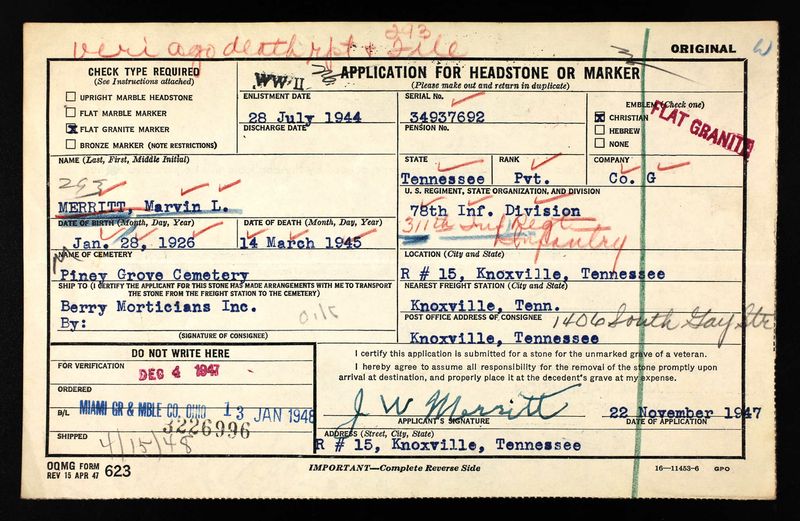 293
veri ago death rpt + File
ORIGINAL
W
CHECK TYPE REQUIRED
(See Instructions attached)
UPRIGHT MARBLE HEADSTONE
FLAT MARBLE MARKER
X FLAT GRANITE MARKER
BRONZE MARKER (NOTE RESTRICTIONS)
WW-II
APPLICATION FOR HEADSTONE OR MARKER
(Please make out and return in duplicate)
ENLISTMENT DATE
28 July 1944
DISCHARGE DATE
SERIAL No.
34937692
PENSION No.
EMBLEM (Check one)
X CHRISTIAN
HEBREW
NONE
FLAT GRANITE
NAME (Last, First, Middle Initial)
293
MERRITT, Marvin L.
STATE
Tennessee
RANK
Pvt.
COMPANY
Co. G
U. S. REGIMENT, STATE ORGANIZATION, AND DIVISION
78th Inf. Division
311th Inf Regt
Infantry
DATE OF BIRTH (Month, Day, Year)
Jan. 28, 1926
DATE OF DEATH (Month, Day, Year)
14 March 1945
NAME OF CEMETERY
Piney Grove Cemetery
LOCATION (City and State)
R # 15, Knoxville, Tennessee
SHIP TO (I CERTIFY THE APPLICANT FOR THIS STONE HAS MADE ARRANGEMENTS WITH ME TO TRANSPORT
THE STONE FROM THE FREIGHT STATION TO THE CEMETERY)
Berry Morticians Inc.
By:
(SIGNATURE OF CONSIGNEE)
NEAREST FREIGHT STATION (City and State)
Knoxville, Tenn.
POST OFFICE ADDRESS OF CONSIGNEE
1406 South Gay Str
Knoxville, Tennessee
DO NOT WRITE HERE
FOR VERIFICATION
DEC 4 1947
ORDERED
B/L
MIAMI GR & MBLE CO, OHIO 13 JAN 1948
3226996
SHIPPED
4/15/48
I certify this application is submitted for a stone for the unmarked grave of a veteran.
I hereby agree to assume all responsibility for the removal of the stone promptly upon
arrival at destination, and properly place it at the decedent's grave at my expense.
J W Merritt
APPLICANT'S SIGNATURE
22 November 1947
DATE OF APPLICATION
ADDRESS (Street, City, State)
R # 15, Knoxville, Tennessee
OQMG FORM
REV 15 APR 47 623
IMPORTANT—Complete Reverse Side
16—11453-6 GPO